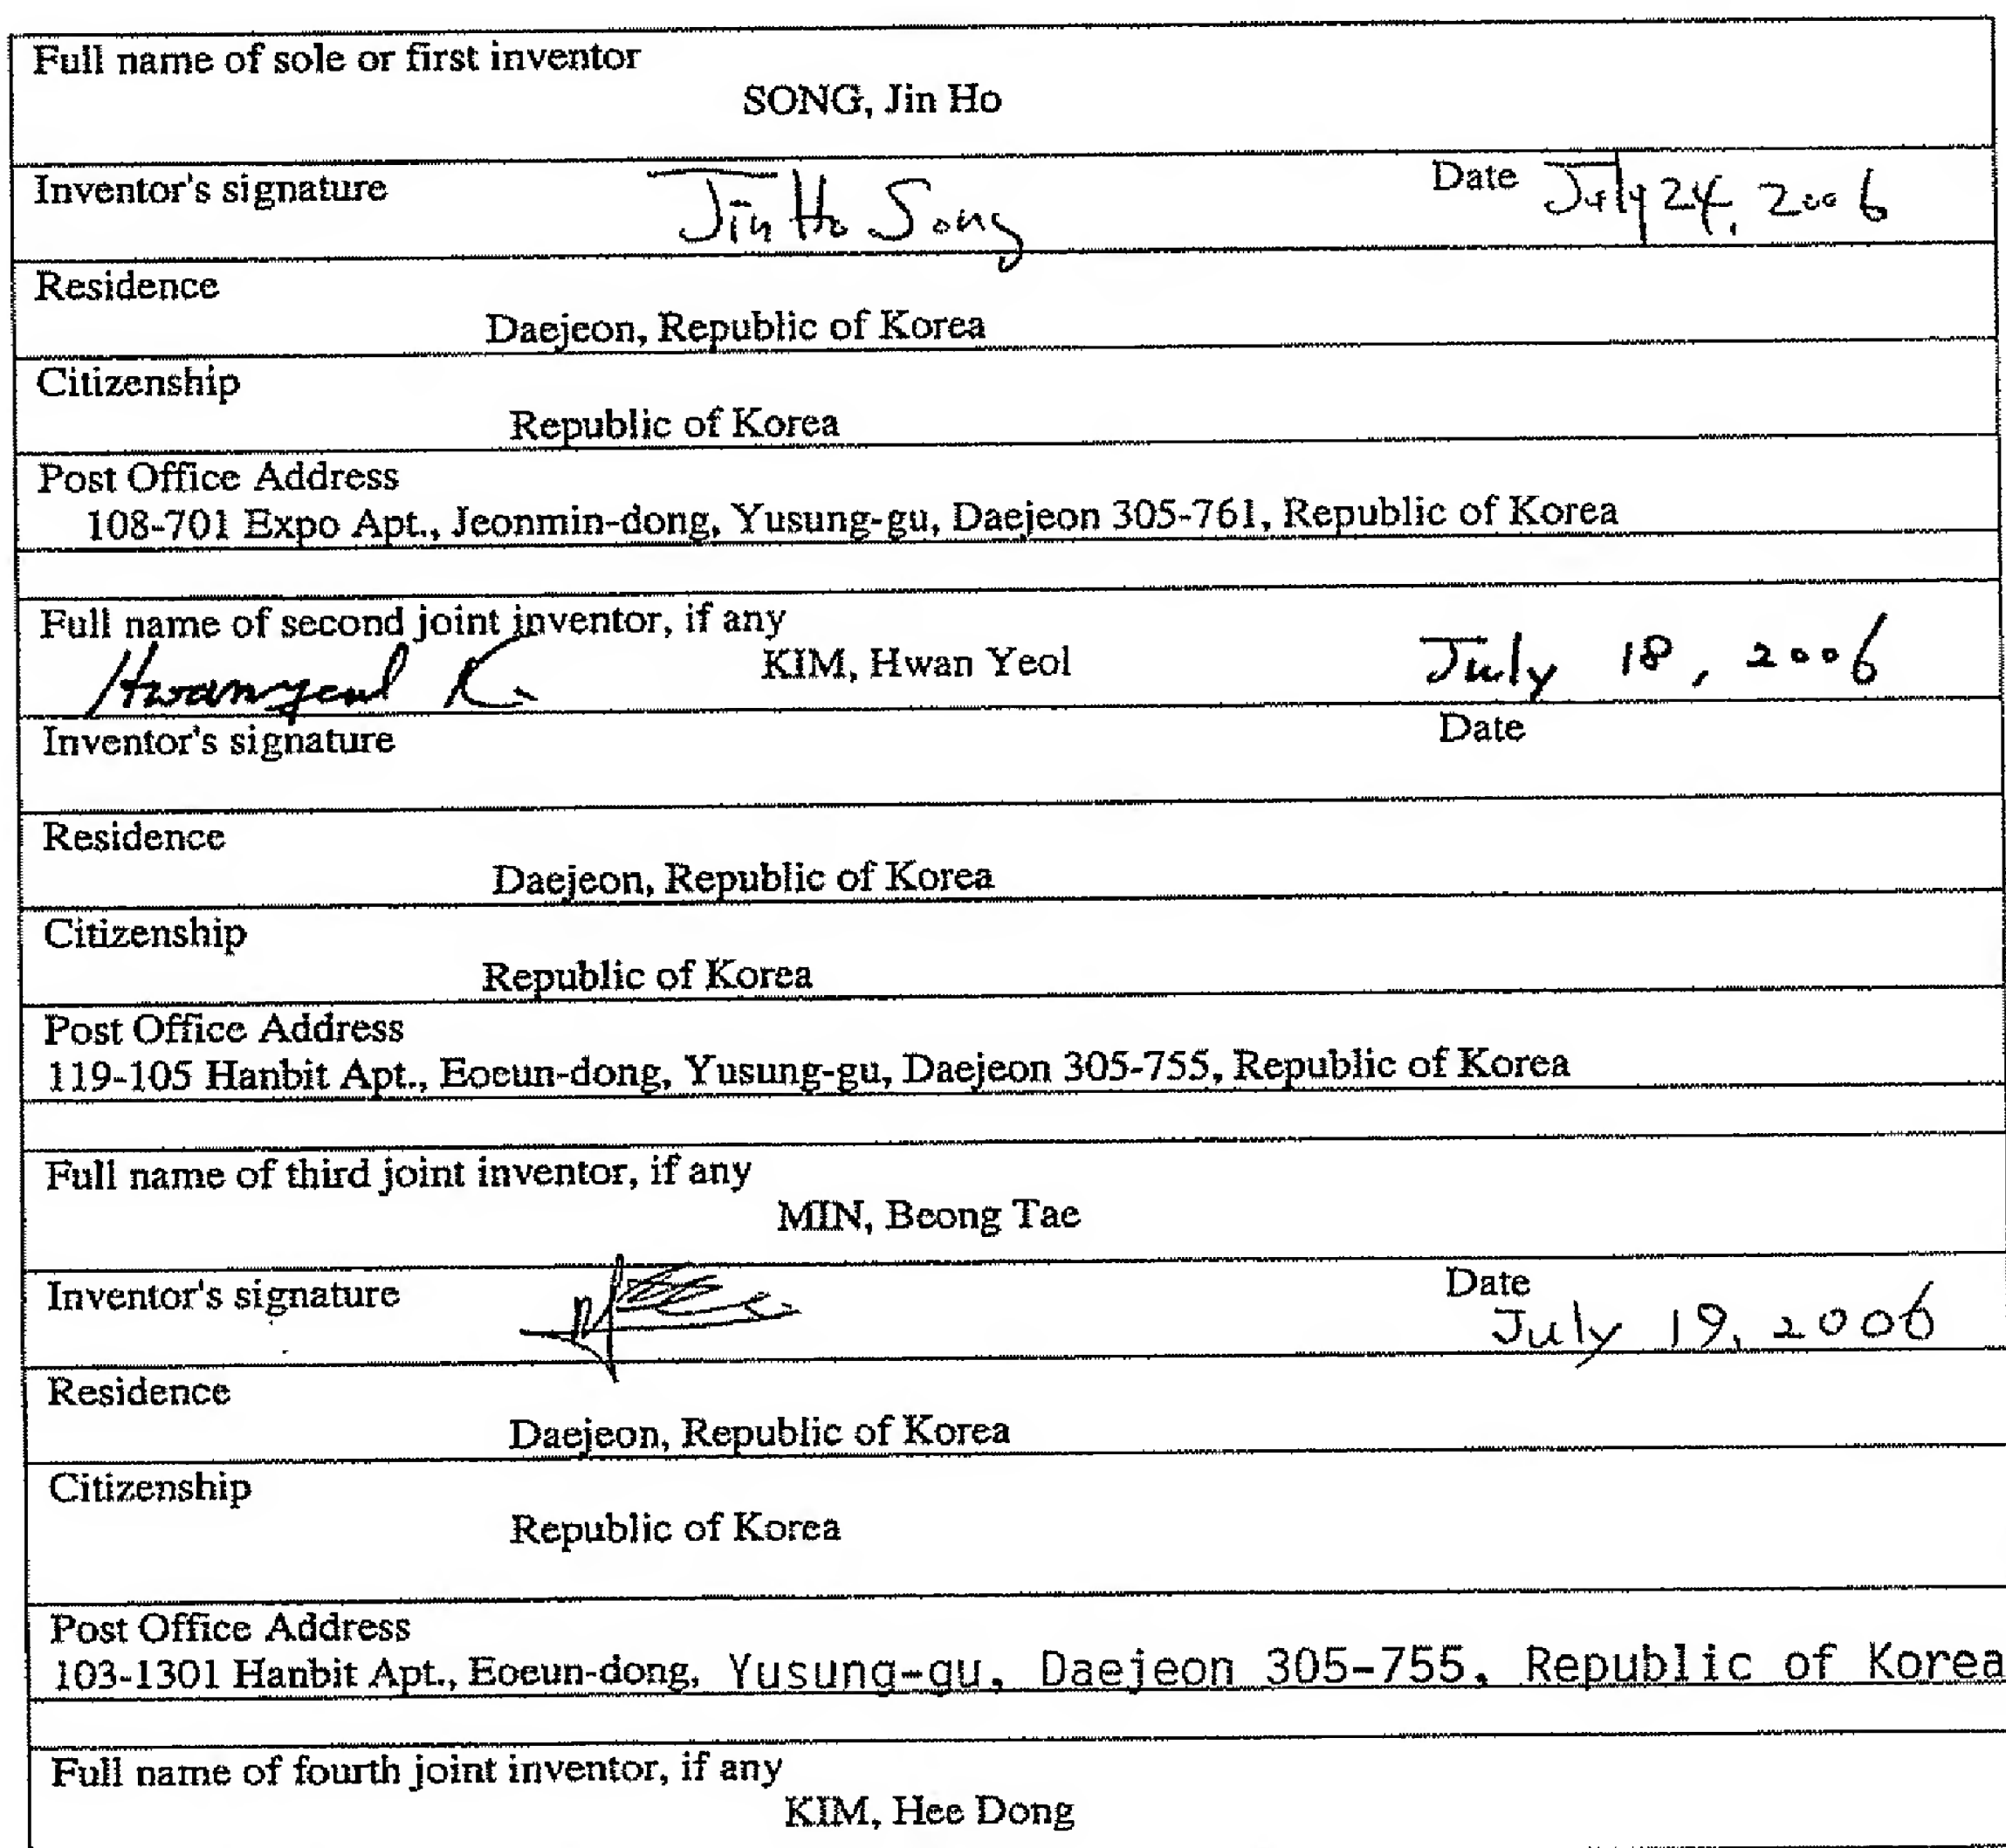 Full name of sole or first inventor
SONG, Jin Ho
Inventor's signature Jin Ho Song Date July 24, 2006
Residence
Daejeon, Republic of Korea
Citizenship
Republic of Korea
Post Office Address
108-701 Expo Apt., Jeonmin-dong, Yusung-gu, Daejeon 305-761, Republic of Korea
Full name of second joint inventor, if any
KIM, Hwan Yeol July 18, 2006
Inventor's signature Date
Residence
Daejeon, Republic of Korea
Citizenship
Republic of Korea
Post Office Address
119-105 Hanbit Apt., Eoeun-dong, Yusung-gu, Daejeon 305-755, Republic of Korea
Full name of third joint inventor, if any
MIN, Beong Tae
Inventor's signature Date
July 19, 2006
Residence
Daejeon, Republic of Korea
Citizenship
Republic of Korea
Post Office Address
103-1301 Hanbit Apt., Eoeun-dong, Yusung-gu, Daejeon 305-755, Republic of Korea
Full name of fourth joint inventor, if any
KIM, Hee Dong